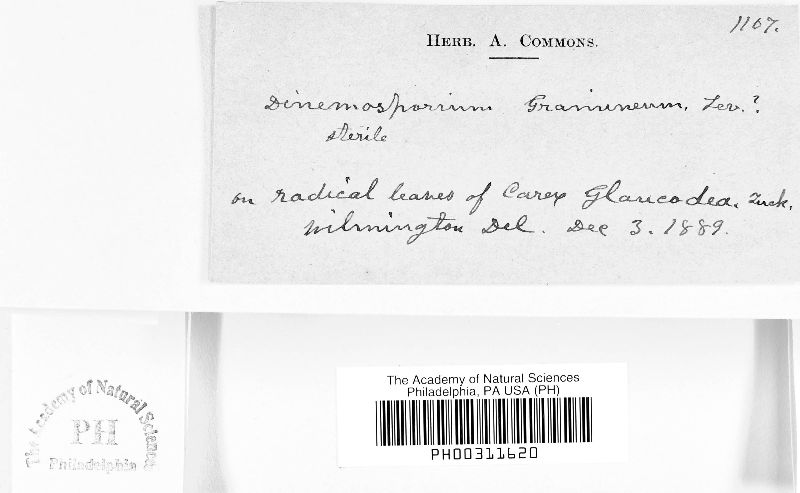 1107.
HERB. A. COMMONS.
Dinemosporium Gramineum, Lev.?
sterile
on radical leaves of Carex Glaucodea. Tuck.
Wilmington Del. Dec 3. 1889.
The Academy of Natural Sciences
Philadelphia, PA USA (PH)
PH00311620
The Academy of Natural Sciences
PH
Philadelphia